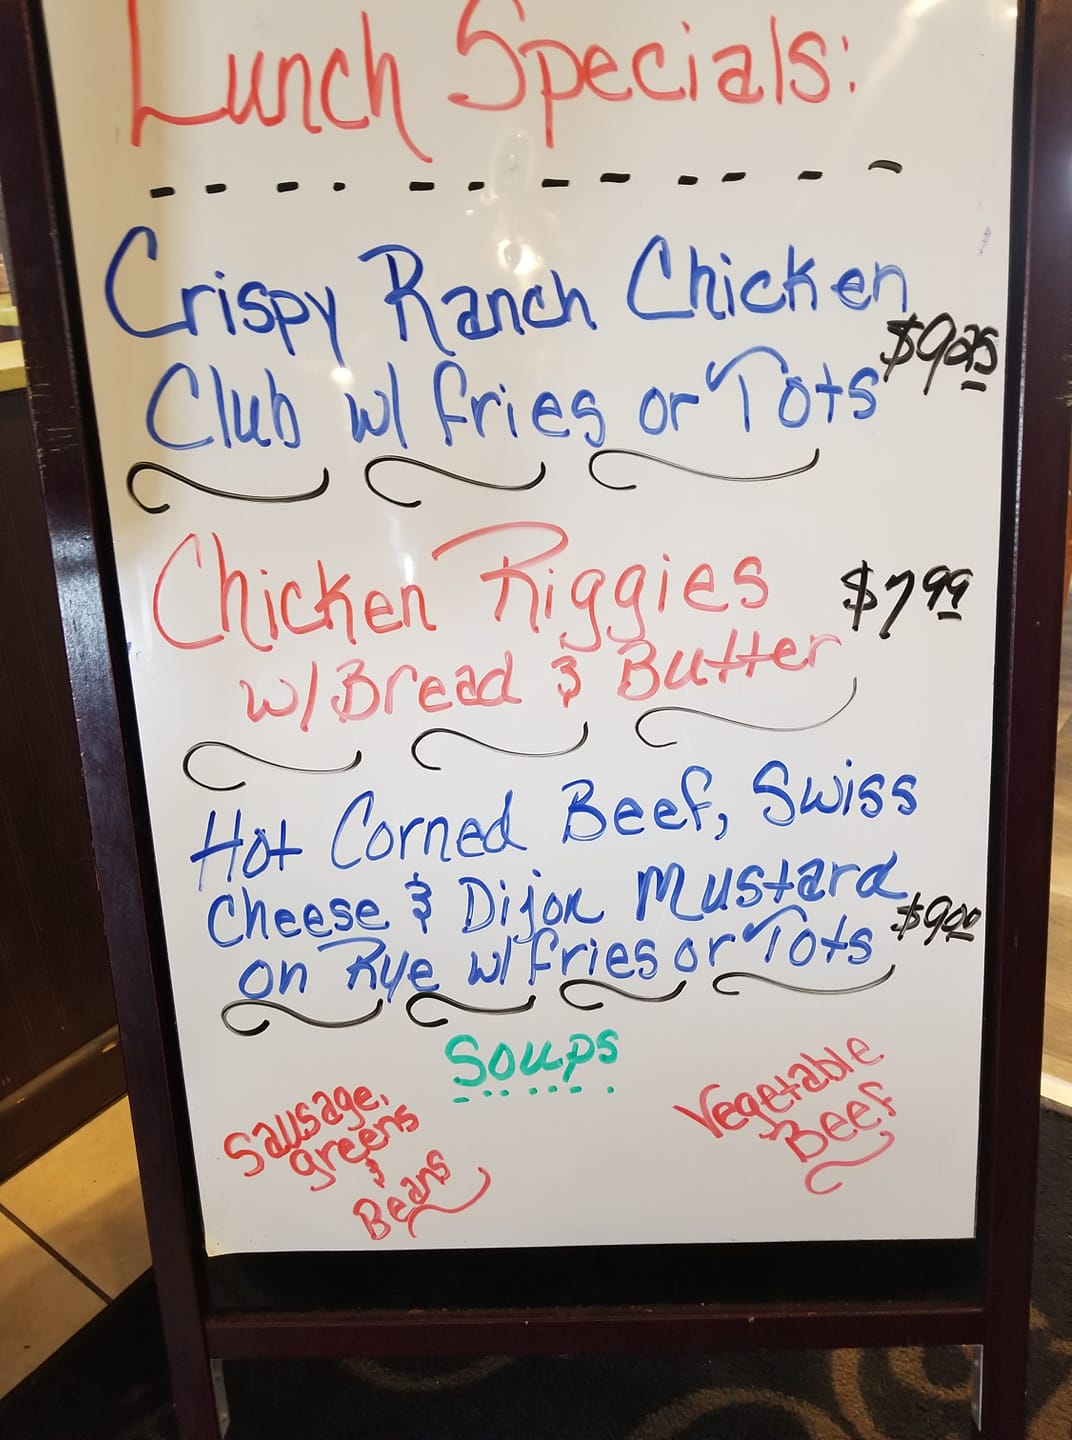 Lunch Specials:
Crispy Ranch Chicken
Club w/ fries or Tots $9.25
Chicken Riggies $7.99
w/ Bread & Butter
Hot Corned Beef, Swiss
Cheese & Dijon Mustard
on Rye w/ fries or Tots $9.00
Soups
Sausage,
greens
&
Beans
Vegetable
Beef